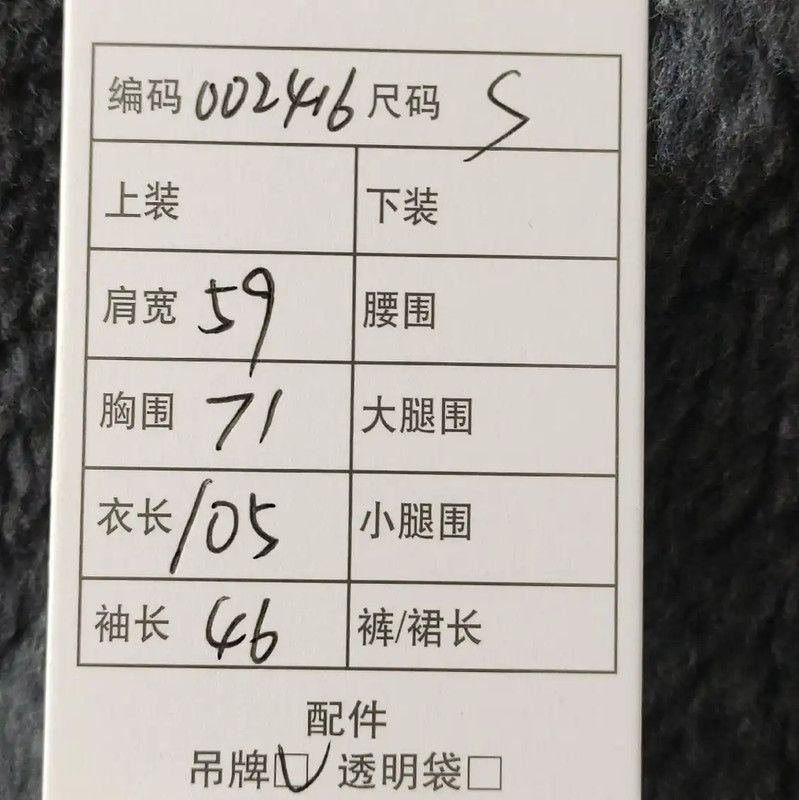 编码 002416 尺码 S
上装 下装
肩宽 59 腰围
胸围 71 大腿围
衣长 105 小腿围
袖长 46 裤/裙长
配件
吊牌☑ 透明袋□